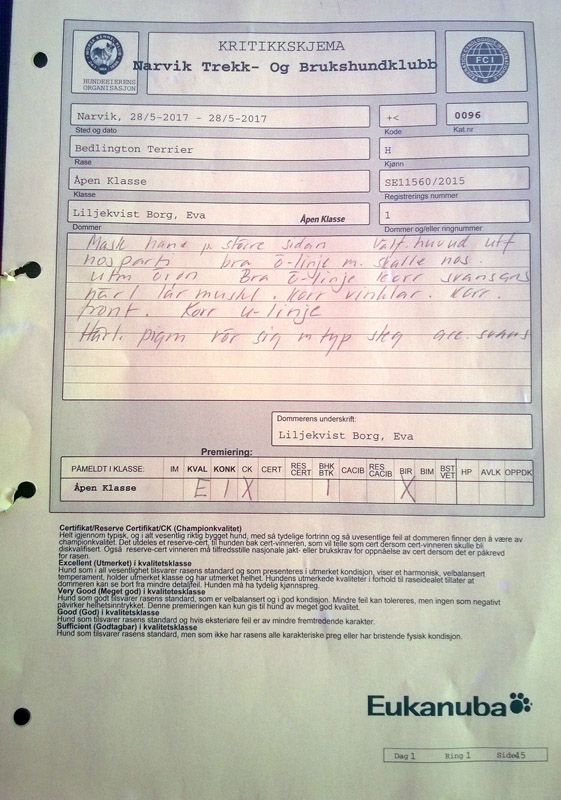 KRITIKKSKJEMA
Narvik Trekk- Og Brukshundklubb
HUNDEEIERENS
ORGANISASJON
FCI
Narvik, 28/5-2017 - 28/5-2017
+<
0096
Sted og dato
Kode
Kat.nr
Bedlington Terrier
H
Rase
Kjønn
Åpen Klasse
SE11560/2015
Klasse
Registrerings nummer
Liljekvist Borg, Eva
Åpen Klasse
1
Dommer
Dommer og/eller ringnummer
Mask hane p. större sidan Välf. huvud utf
nosparti bra ö-linje m. skalle nos.
utm öron Bra ö-linje korr svansans
härl lår muskl. Korr vinklar. Korr.
front. Korr u-linje
Härl. pigm rör sig m typ steg svans
Dommerens underskrift:
Liljekvist Borg, Eva
Premiering:
PÅMELDT I KLASSE: IM KVAL KONK CK CERT RES CERT BHK BTK CACIB RES CACIB BIR BIM BST VET HP AVLK OPPDK
Åpen Klasse E 1 X 1 X
Certifikat/Reserve Certifikat/CK (Championkvalitet)
Helt igjennom typisk, og i alt vesentlig riktig bygget hund, med så tydelige fortrinn og så uvesentlige feil at dommeren finner den å være av
championkvalitet. Det utdeles et reserve-cert, til hunden bak cert-vinneren, som vil telle som cert dersom cert-vinneren skulle bli
diskvalifisert. Også reserve-cert vinneren må tilfredsstille nasjonale jakt- eller brukskrav for oppnåelse av cert dersom det er påkrevd
for rasen.
Excellent (Utmerket) i kvalitetsklasse
Hund som i all vesentlighet tilsvarer rasens standard og som presenteres i utmerket kondisjon, viser et harmonisk, velbalansert
temperament, holder utmerket klasse og har utmerket helhet. Hundens utmerkede kvaliteter i forhold til raseidealet tillater at
dommeren kan se bort fra mindre detaljfeil. Hunden må ha tydelig kjønnspreg.
Very Good (Meget god) i kvalitetsklasse
Hund som godt tilsvarer rasens standard, som er velbalansert og i god kondisjon. Mindre feil kan tolereres, men ingen som negativt
påvirker helhetsinntrykket. Denne premieringen kan kun gis til hund av meget god kvalitet.
Good (God) i kvalitetsklasse
Hund som tilsvarer rasens standard og hvis eksteriøre feil er av mindre fremtredende karakter.
Sufficient (Godtagbar) i kvalitetsklasse
Hund som tilsvarer rasens standard, men som ikke har rasens alle karakteriske preg eller har bristende fysisk kondisjon.
Eukanuba
Dag 1 Ring 1 Side45